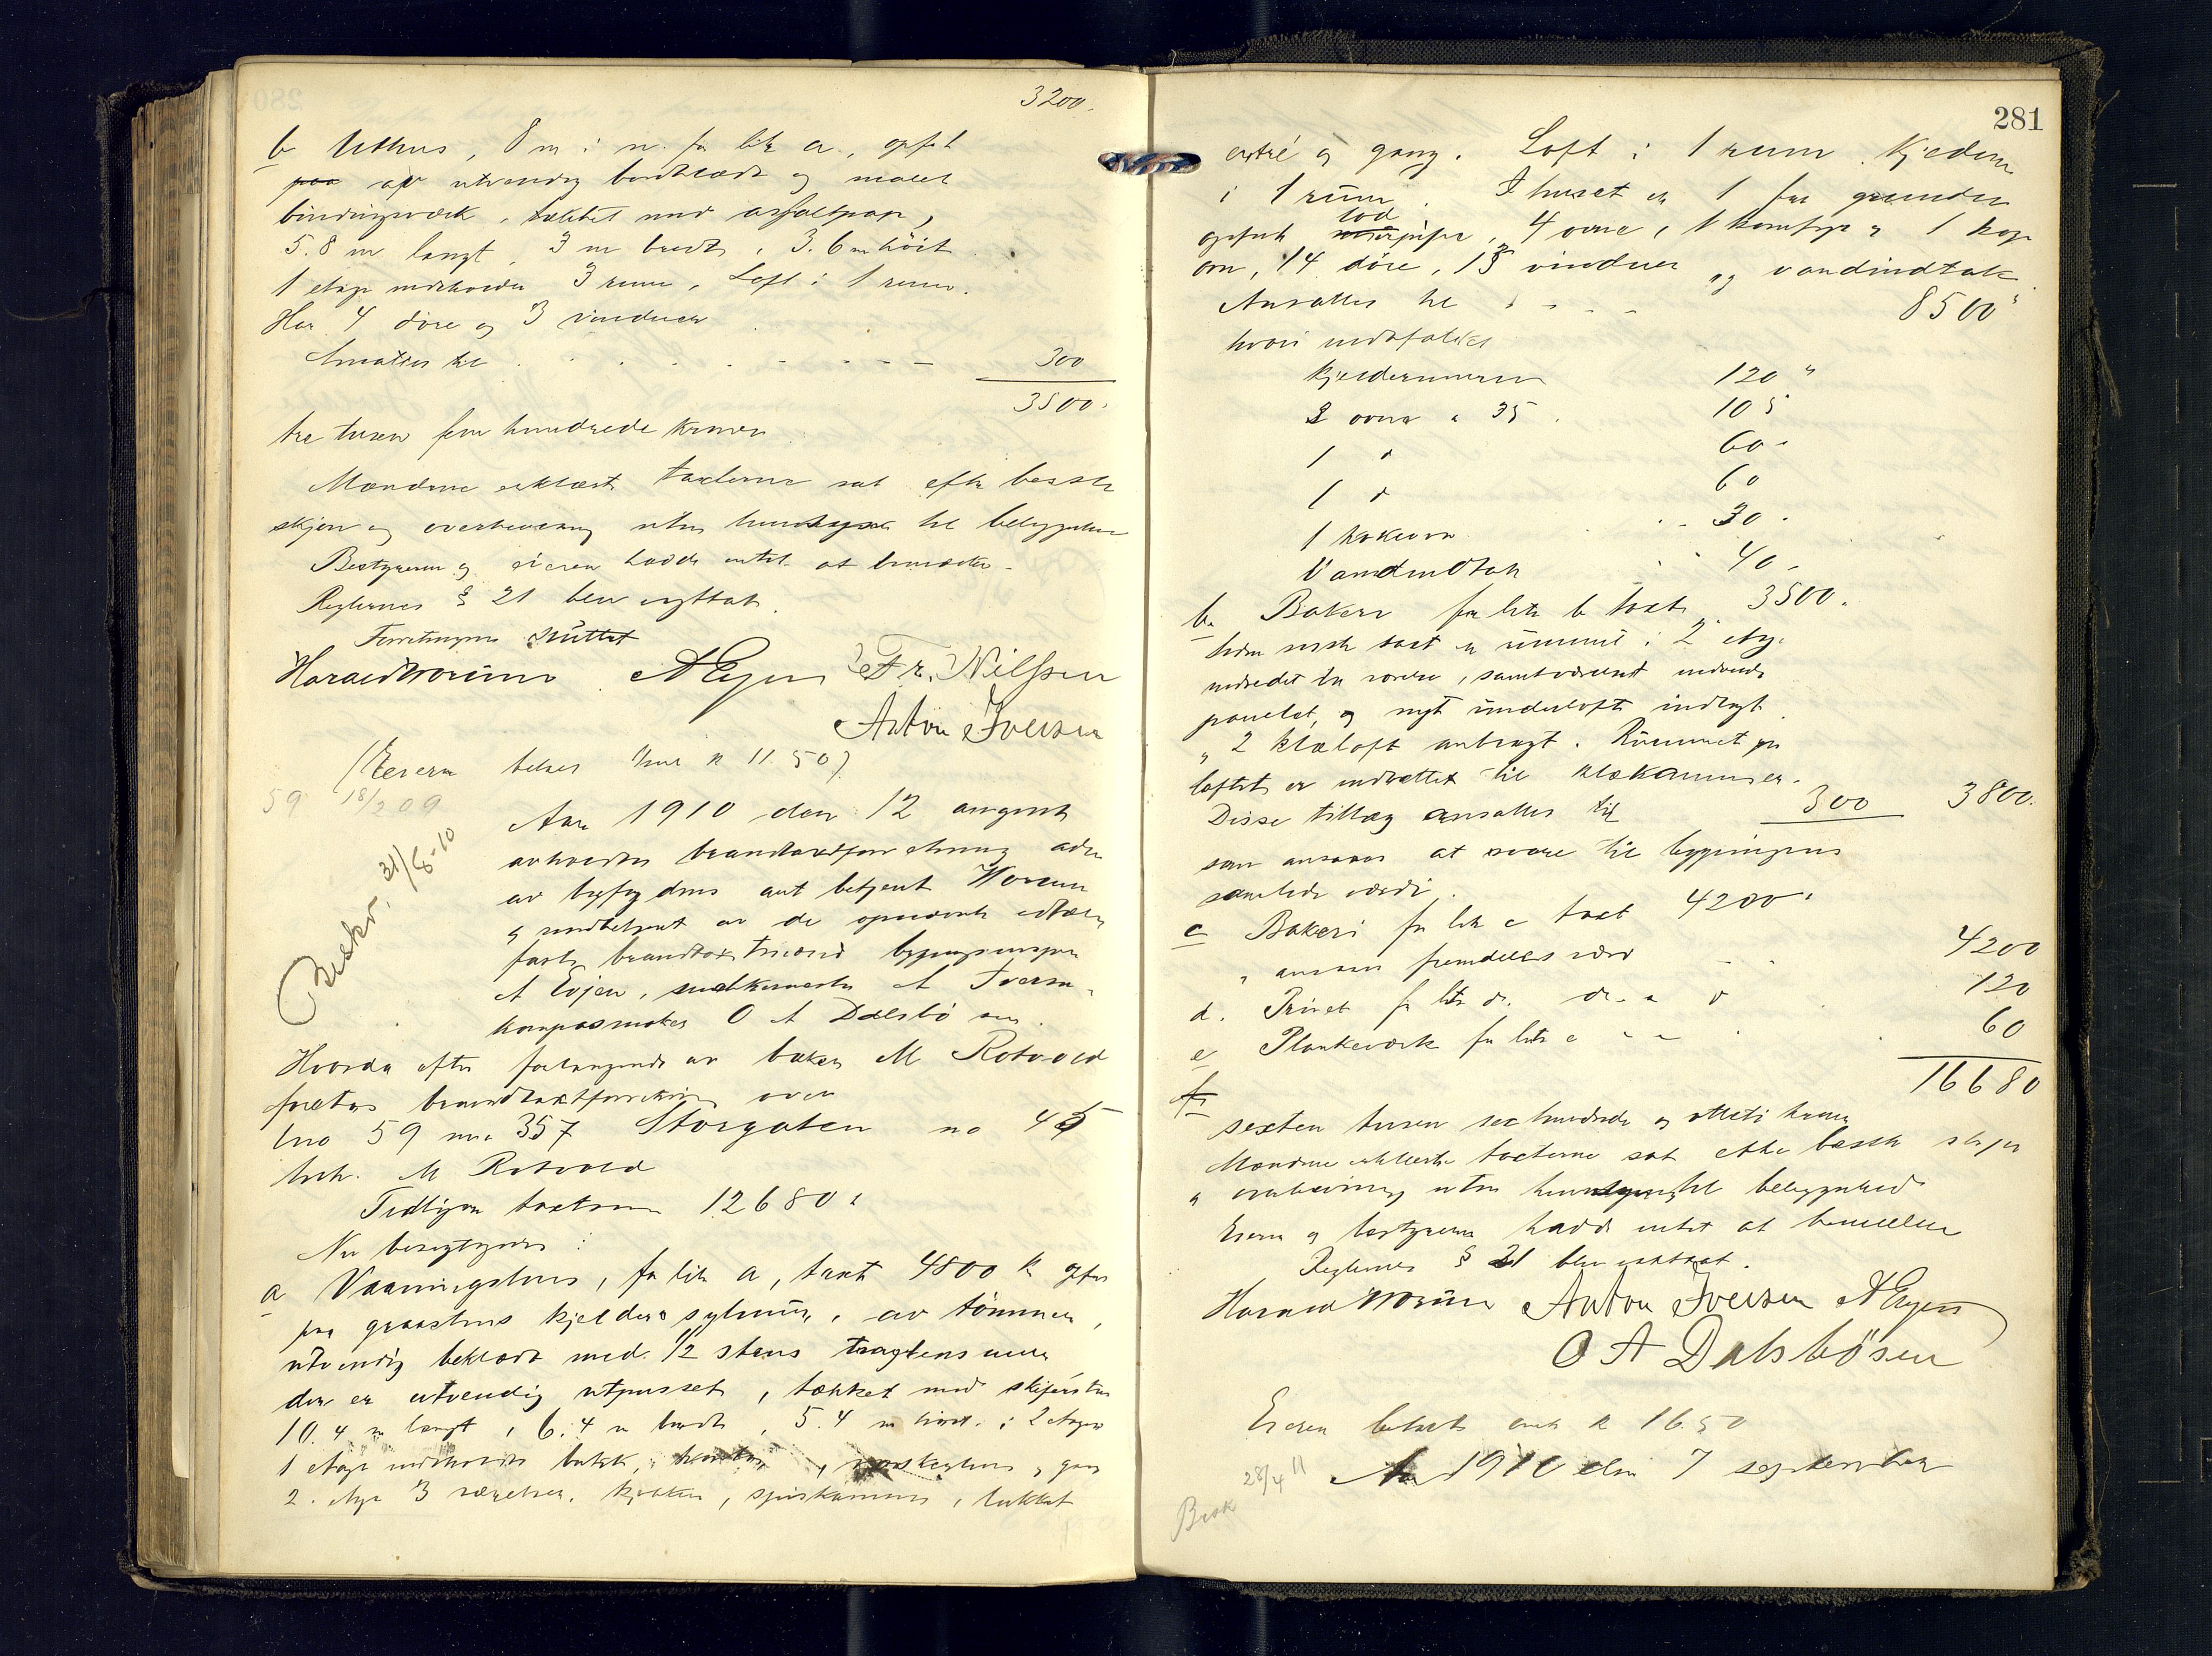 3200.
b Uthus, 8 m i n. for litr a., opført
paa av utvendig bordklædt og malet
bindingsverk, tækket med asfaltpap,
5.8 m langt, 3 m bredt, 3.6 m höit
1 etage indeholder 3 rum, Loft i 1 rum.
Har 4 döre og 3 vinduer
Ansættes til 300
3500.
tre tusen fem hundrede kroner
Mændene erklærte taxterne sat efter bedste
skjön og overbevisning uten hensyn til beliggenhed
Bestyreren og eieren hadde intet at bemerke.
Reglernes § 21 blev iagttat.
Forretningen sluttet
Harald Worum A Evjen Fr. Nilssen
Anton Iversen
(Eieren betaler kr 11.50)
59 18/2 09
Beskr. 31/8-10
Aar 1910 den 12 august
avholdtes brandtaxtforretning
av byfogdens aut betjent Worum
og meddelt av de opnævnte
faste brandtaxtmænd bygningsinspek
A Evjen, A Iversen,
kompasmaker O A Dalsbö sen.
Hvorda efter forlangende av baker M Rotvold
foretoges brandtaxtforretning over
bno 59 mn. 357 Storgaten no 45
tilh. M Rotvold
Tidligere taxtsum 12680.
Nu besigtiges:
a Vaaningshus, for litr a, taxt 4800 kr opført
paa graastens kjelder sylmur, av tömmer,
utvendig beklædt med 1/2 stens teglstensmur
der er utvendig utpusset, tækket med skifersten
10.4 m langt, 6.4 m bredt, 5.4 m höit. i 2 etager
1 etage indeholder butik, kontor, og gang
2. etage 3 værelser, kjökken, spiskammer, lukket
281
entré og gang. Loft i 1 rum. Kjelder
i 1 rum. I huset er 1 fra grunden
opført lod pipe, 4 ovne, 1 komfyr og 1 kog
ovn, 14 döre, 13 vinduer og vandindtak
Ansættes til 8500
hvori indbefattet
kjeldermuren 120
3 ovne a 35 105
1 " 60
1 " 60
1 kokeovn 30
Vandindtak 40
b. Bakeri for litr b taxt 3500.
siden sidste taxt er rummet i 2 etage
indredet til værelse, samt indvendig
panelet, og nyt underloft indlagt
" 2 klæloft anbragt. Rummet paa
loftet er indrettet til klækammer.
Disse tillæg ansættes til 300 3800.
som ansaaes at svare til bygningens
samlede værdi.
c Bakeri for litr c taxt 4200.
" ansaaes fremdeles værd 4200
d. Privet for litr d. do. 120
e Plankeværk for litr e " " 60
16680
sexten tusen sex hundrede og otteti kroner
Mændene erklærte taxterne sat efter bedste skjön
og overbevisning uten hensyn til beliggenhed
Eieren og bestyreren hadde intet at bemerke
Reglernes § 21 blev iagttat.
Harald Worum Anton Iversen A Evjen
O A Dalsbö sen
Eieren betalte kr 16.50
28/4 11 Aar 1910 den 7 september
Besk